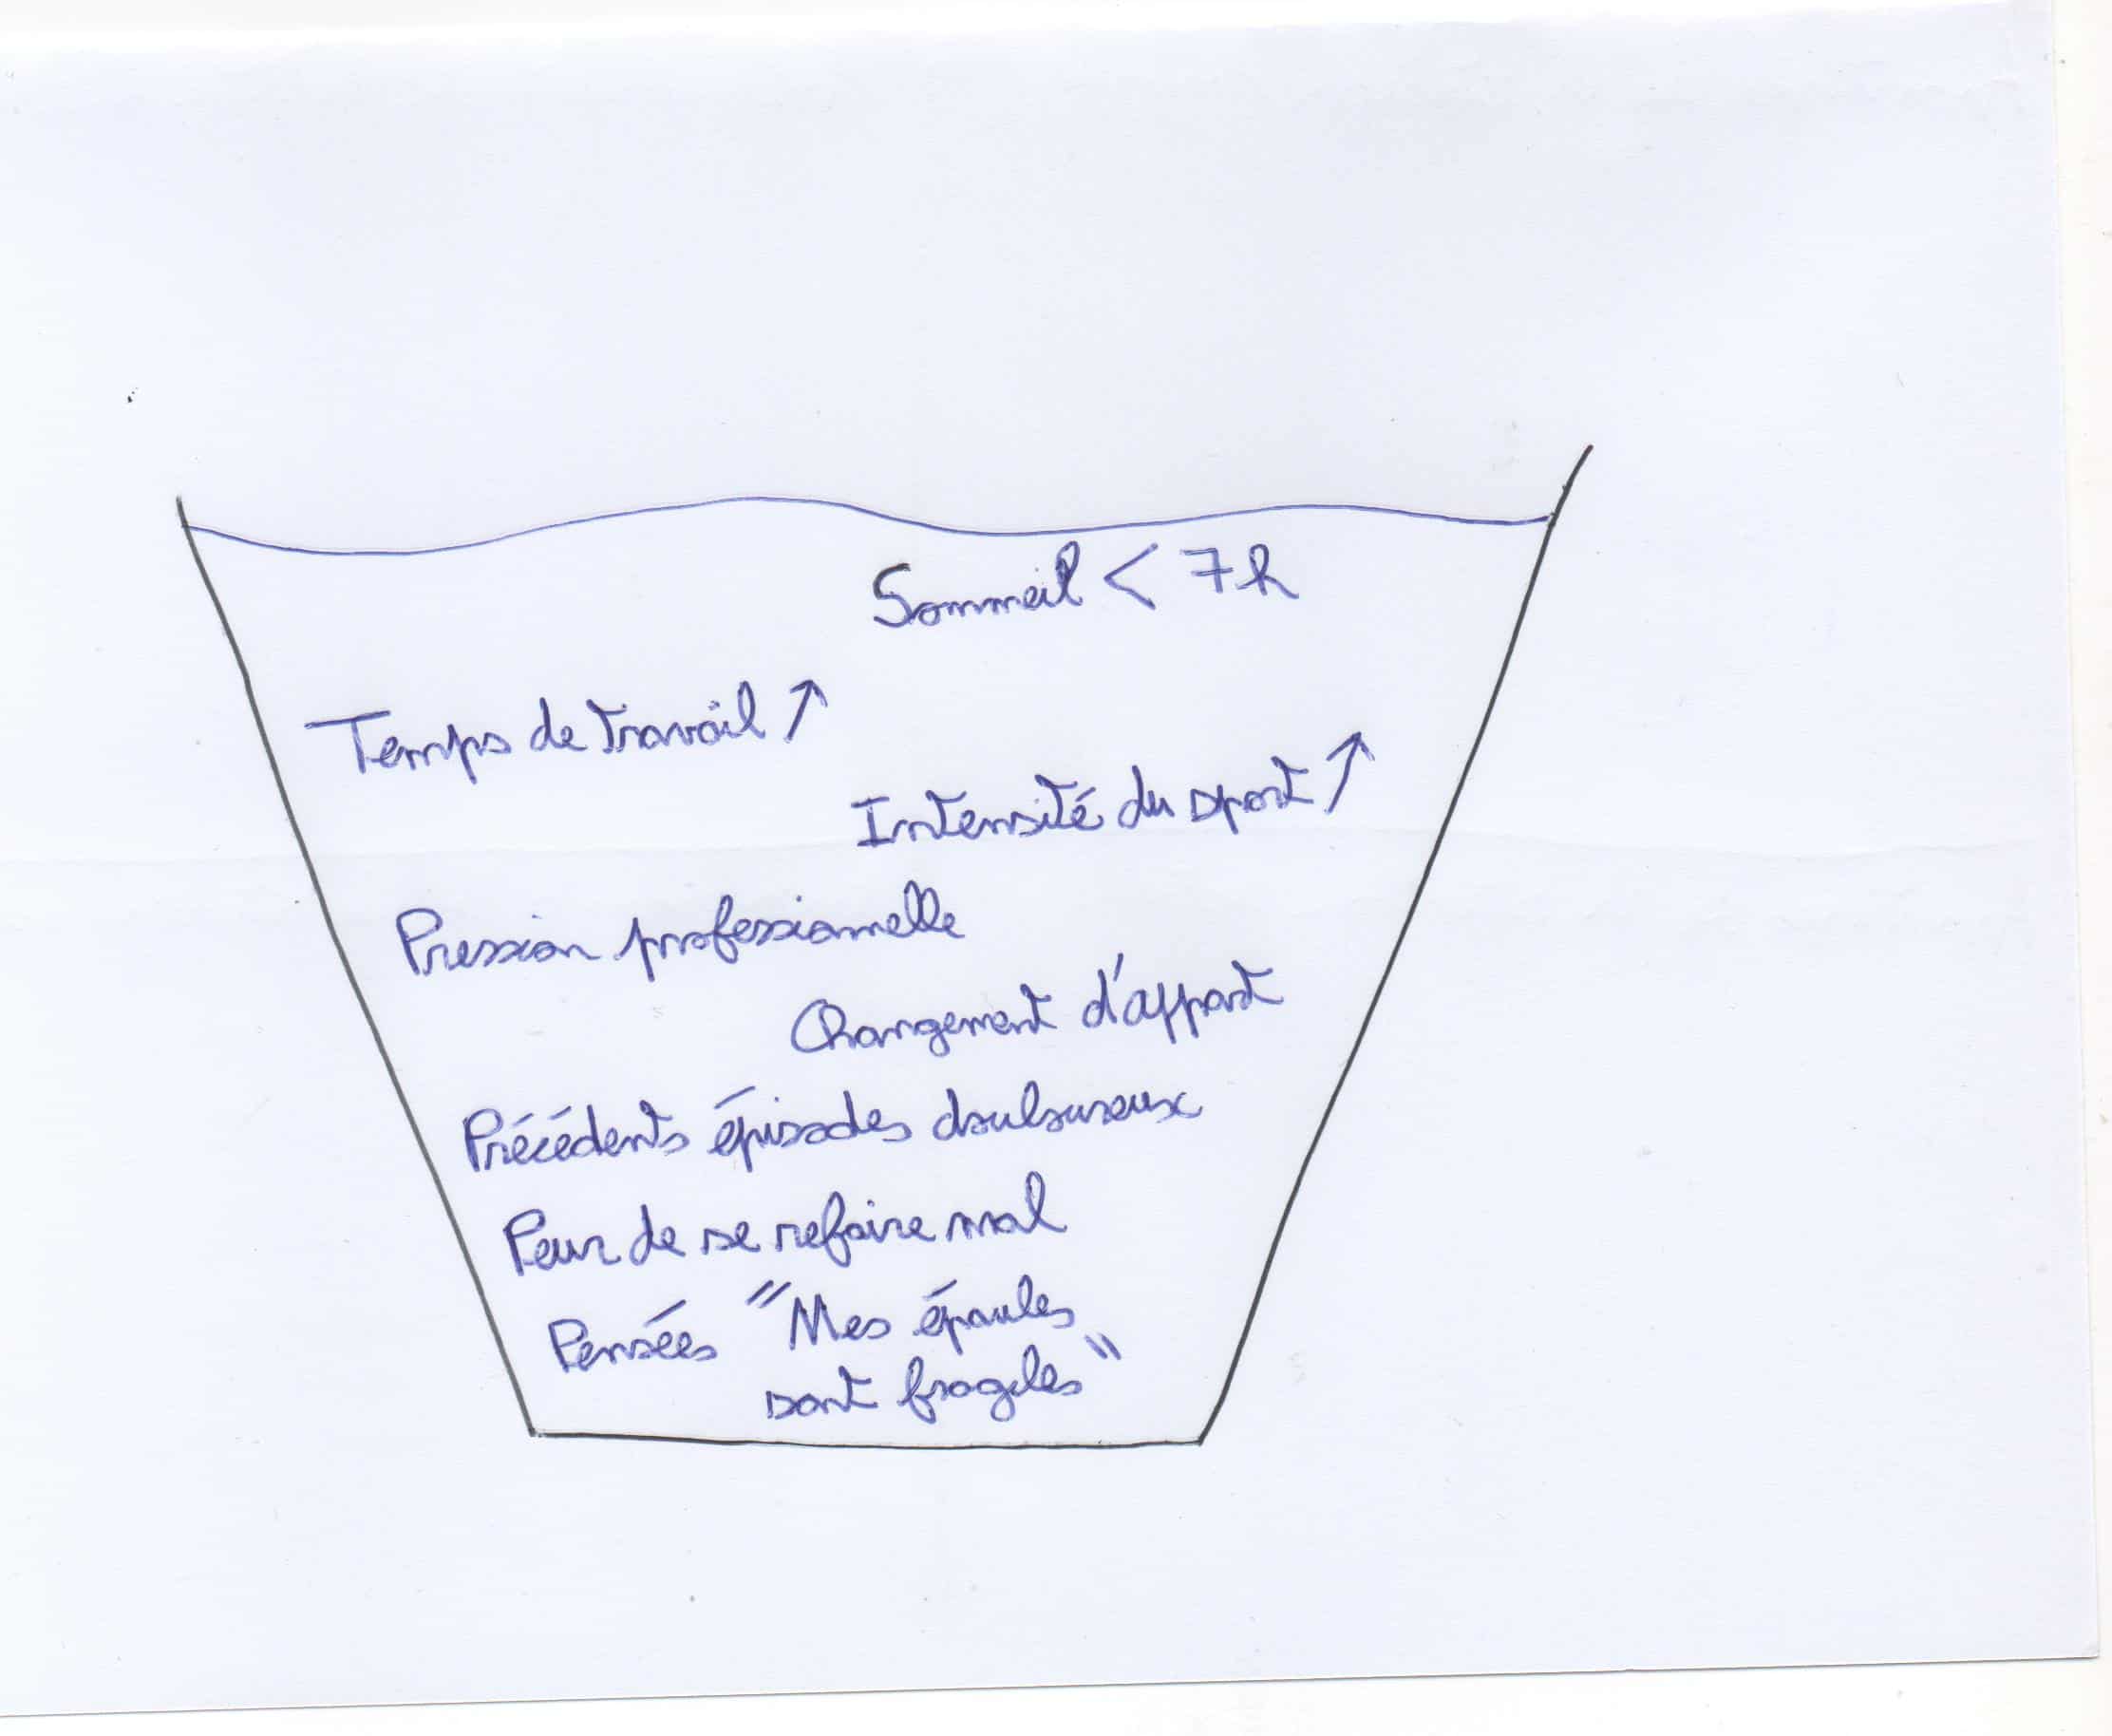 Sommeil < 7h
Temps de travail ↑
Intensité du sport ↑
Pression professionnelle
Changement d'appart
Précédents épisodes douloureux
Peur de se refaire mal
Pensées "Mes épaules
sont fragiles"